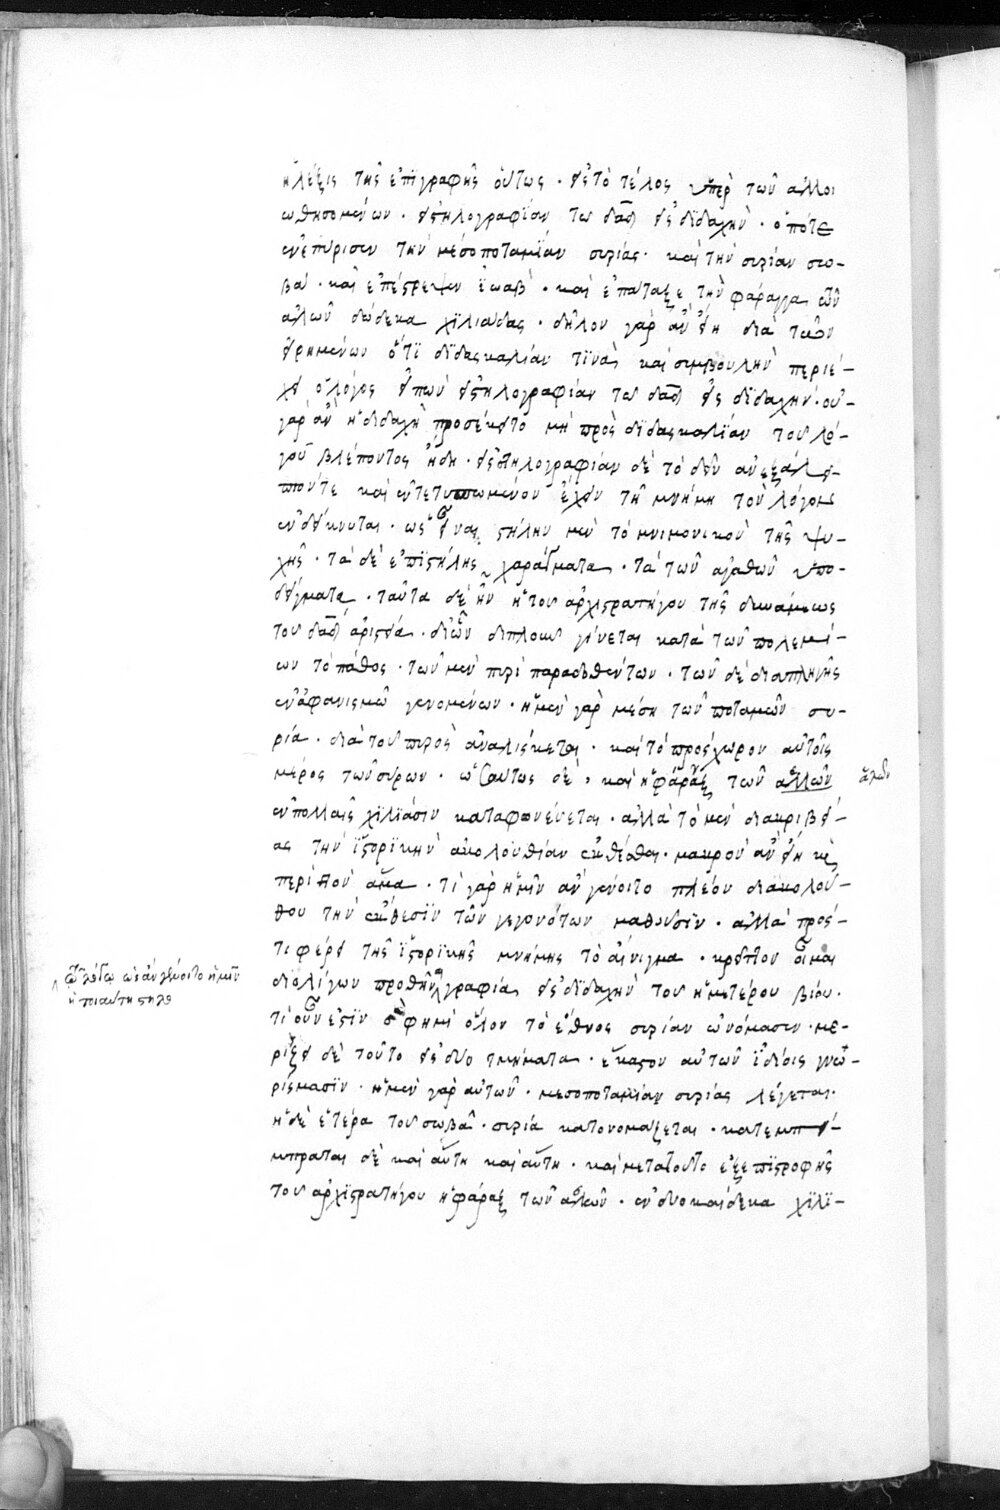 ἡ λέξις τῆς ἐπιγραφῆς οὕτως · εἰς τὸ τέλος ὑπὲρ τῶν ἀλλοι
ωθησομένων · εἰς στηλογραφίαν τῶ δαδ εἰς διδαχὴν · ὁπότε
ἐνεπύρισεν τὴν μεσοποταμίαν συρίας · καὶ τὴν συρίαν σω-
βά · καὶ ἐπέστρεψεν ἰωαβ · καὶ ἐπάταξε τὴν φάραγγα τῶν
ἁλῶν δώδεκα χιλιάδας · δῆλον γὰρ ἂν εἴη διὰ τῶν
εἰρημένων ὅτι διδασκαλίαν τινὰ καὶ συμβουλὴν περιέ-
χει ὁ λόγος εἰπὼν εἰς στηλογραφίαν τῶ δαδ εἰς διδαχήν · οὐ
γὰρ ἂν ἡ διδαχὴ προσέκειτο μὴ πρὸς διδασκαλίαν τοῦ λό-
γου βλέποντος ἤδη · εἰς στηλογραφίαν δὲ τὸ δεῖν ἀνεξάλει-
πτόν τε καὶ ἐντετυπωμένον ἔχειν τῇ μνήμῃ τὸν λόγον
ἐνδείκνυται · ὡς εἶναι στήλην μὲν τὸ μνημονικὸν τῆς ψυ-
χῆς · τὰ δὲ ἐπὶ στήλης χαράγματα · τὰ τῶν ἀγαθῶν ὑπο-
δείγματα · ταῦτα δὲ ἦν ἡ τοῦ ἀρχιστρατήγου τῆς δυνάμεως
τοῦ δαδ ἀριστεία · δι ὧν διπλοῦν γίνεται κατὰ τῶν πολεμί-
ων τὸ πάθος · τῶν μὲν πυρὶ παραδοθέντων · τῶν δὲ διὰ πληγῆς
ἐν ἀφανισμῷ γενομένων · ἡ μὲν γὰρ μέση τῶν ποταμῶν συ-
ρία · διὰ τοῦ πυρὸς ἀναλίσκεται · καὶ τὸ πρόσχωρον αὐτοῖς
μέρος τῶν σύρων · ὡσαύτως δὲ · καὶ ἡ φάραγξ τῶν ἄλλων ἁλῶν
ἐν πολλαῖς χιλιάσιν καταφονεύεται · ἀλλὰ τὸ μὲν διακριβεί-
ας τὴν ἱστορικὴν ἀκολουθίαν ἐκθέσθαι · μακρὸν ἂν εἴη καὶ
περιττὸν ἅμα · τί γὰρ ἡμῖν ἂν γένοιτο πλέον διακολού-
θου τὴν ἔκθεσιν τῶν γεγονότων μαθοῦσιν · ἀλλὰ πρὸς
τί φέρει τῆς ἱστορικῆς μνήμης τὸ αἴνιγμα · κρεῖττον οἶμαι
δι ὀλίγων προθεῖναι γραφία εἰς διδαχὴν τοῦ ἡμετέρου βίου ·
ὡς ἂν γένοιτο ἡμῖν
ἡ τοιαύτη στηλο
τί οὖν ἐστὶν ὅ φημι ὅλον τὸ ἔθνος συρίαν ὠνόμασεν · με-
ρίζει δὲ τοῦτο εἰς δύο τμήματα · ἕκαστον αὐτῶν ἰδίοις γνω-
ρίσμασιν · ἡ μὲν γὰρ αὐτῶν · μεσοποταμίαν συρίας λέγεται ·
ἡ δὲ ἑτέρα τοῦ σωβὰ · συρία κατονομάζεται · κατεμπί-
μπραται δὲ καὶ αὕτη καὶ αὕτη · καὶ μετὰ τοῦτο ἐξ ἐπιστροφῆς
τοῦ ἀρχιστρατήγου ἡ φάραγξ τῶν ἁλῶν · ἐν δυοκαίδεκα χιλι-